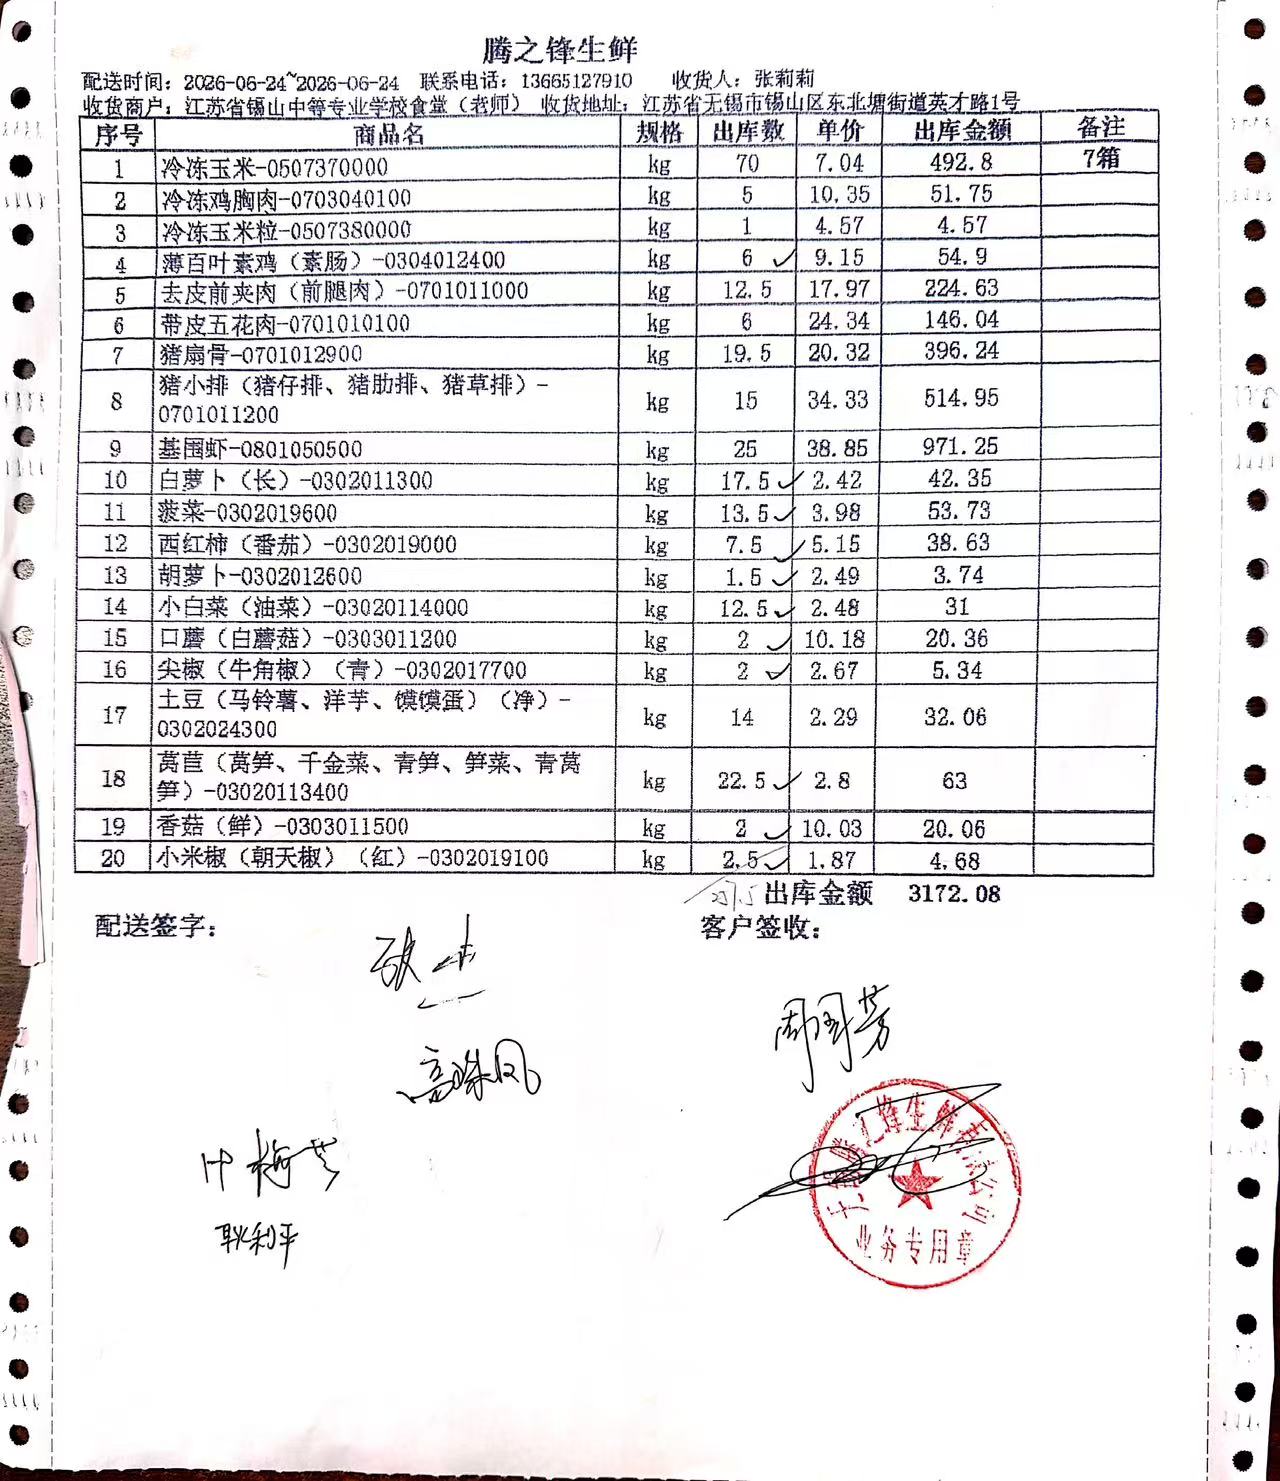 腾之锋生鲜
配送时间：2026-06-24~2026-06-24 联系电话：13665127910 收货人：张莉莉
收货商户：江苏省锡山中等专业学校食堂（老师） 收货地址：江苏省无锡市锡山区东北塘街道英才路1号
序号 商品名 规格 出库数 单价 出库金额 备注
1 冷冻玉米-0507370000 kg 70 7.04 492.8 7箱
2 冷冻鸡胸肉-0703040100 kg 5 10.35 51.75
3 冷冻玉米粒-0507380000 kg 1 4.57 4.57
4 薄百叶素鸡（素肠）-0304012400 kg 6 ✓ 9.15 54.9
5 去皮前夹肉（前腿肉）-0701011000 kg 12.5 17.97 224.63
6 带皮五花肉-0701010100 kg 6 24.34 146.04
7 猪扇骨-0701012900 kg 19.5 20.32 396.24
8 猪小排（猪仔排、猪肋排、猪草排）-
0701011200 kg 15 34.33 514.95
9 基围虾-0801050500 kg 25 38.85 971.25
10 白萝卜（长）-0302011300 kg 17.5 ✓ 2.42 42.35
11 菠菜-0302019600 kg 13.5 ✓ 3.98 53.73
12 西红柿（番茄）-0302019000 kg 7.5 ✓ 5.15 38.63
13 胡萝卜-0302012600 kg 1.5 ✓ 2.49 3.74
14 小白菜（油菜）-03020114000 kg 12.5 ✓ 2.48 31
15 口蘑（白蘑菇）-0303011200 kg 2 ✓ 10.18 20.36
16 尖椒（牛角椒）（青）-0302017700 kg 2 ✓ 2.67 5.34
17 土豆（马铃薯、洋芋、馍馍蛋）（净）-
0302024300 kg 14 2.29 32.06
18 莴苣（莴笋、千金菜、青笋、笋菜、青莴
笋）-03020113400 kg 22.5 ✓ 2.8 63
19 香菇（鲜）-0303011500 kg 2 ✓ 10.03 20.06
20 小米椒（朝天椒）（红）-0302019100 kg 2.5 ✓ 1.87 4.68
出库金额 3172.08
配送签字： 客户签收：
周国芳
高珠凤
叶梅芳
耿利平
业务专用章